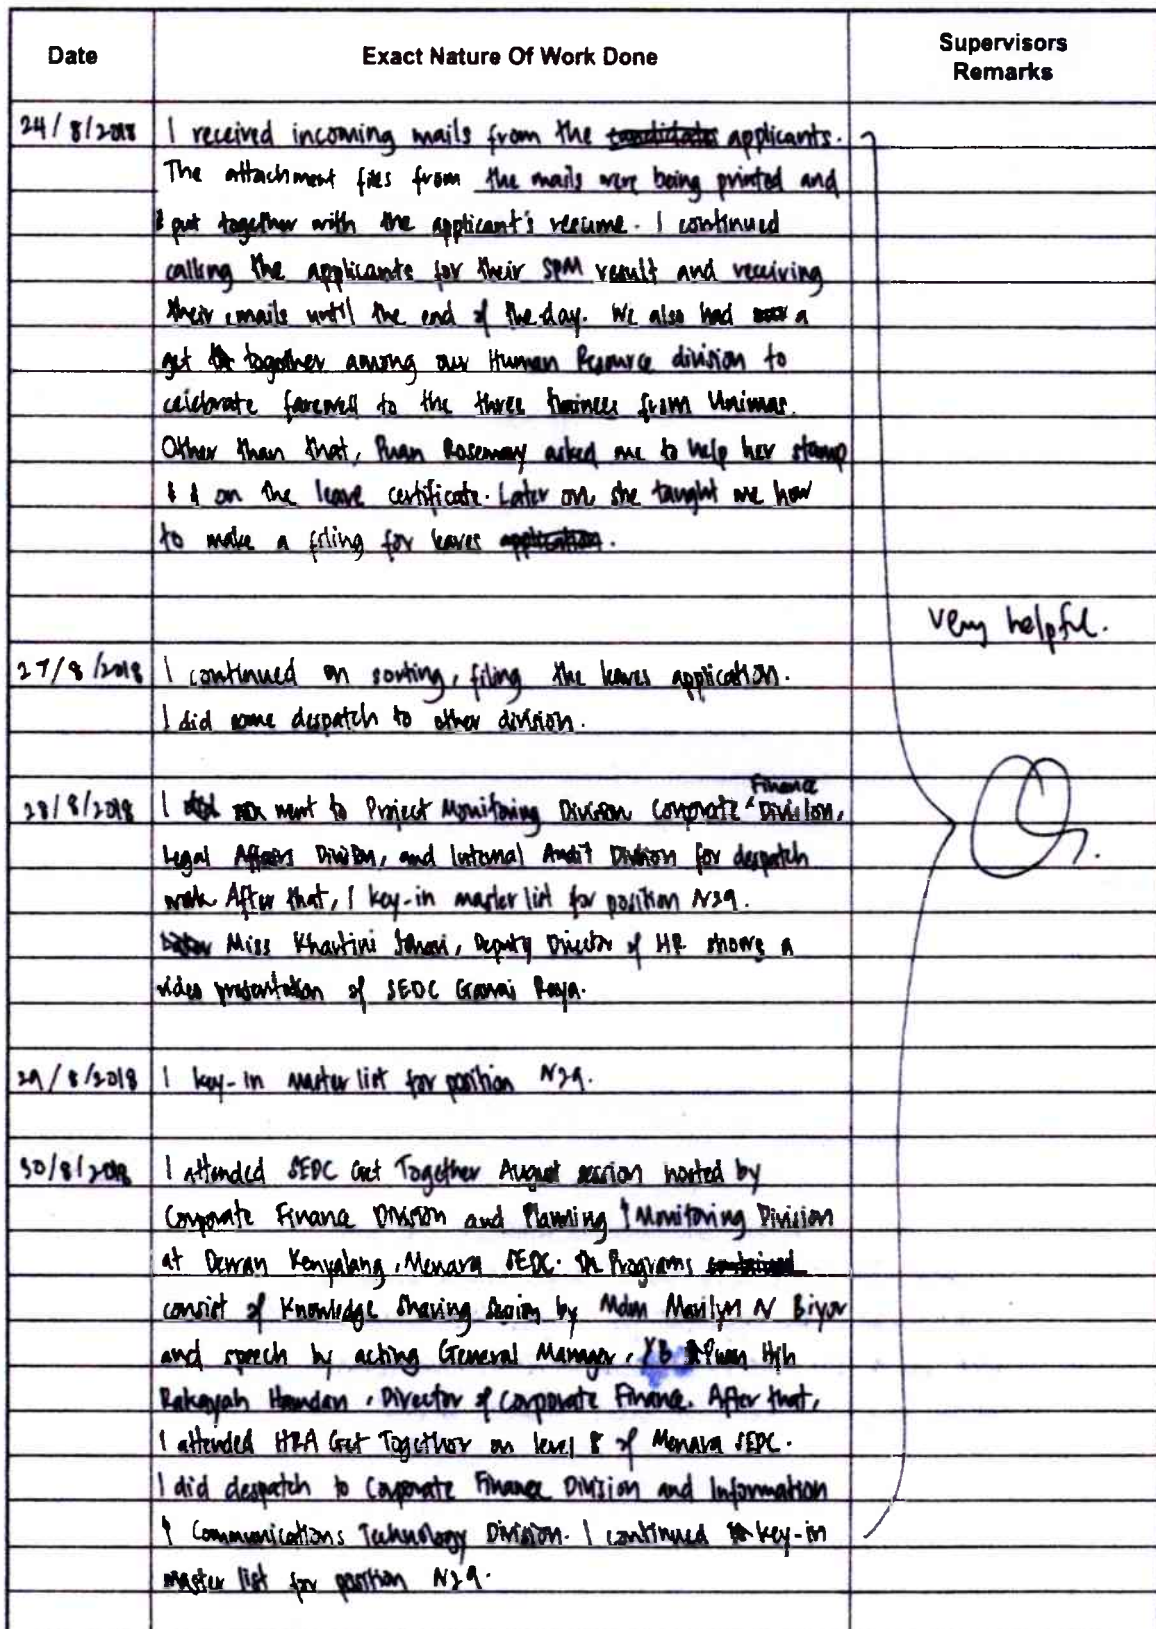 Date Exact Nature Of Work Done Supervisors Remarks
24/8/2018 I received incoming mails from the candidates applicants.
The attachment files from the mails were being printed and
& put together with the applicant's resume. I continued
calling the applicants for their SPM result and receiving
their emails until the end of the day. We also had a
get together among our Human Resource division to
celebrate farewell to the three trainees from Unimas.
Other than that, Puan Rosemary asked me to help her stamp
on the leave certificate. Later on she taught me how
to make a filing for leaves application.
very helpful.
27/8/2018 I continued on sorting, filing the leaves application.
I did some despatch to other division.
Finance
28/8/2018 I did went to Project Monitoring Division Corporate Division,
Legal Affairs Division, and Internal Audit Division for despatch
work. After that, I key-in master list for position N29.
Miss Khartini, Deputy Director of HR shows a
video presentation of SEDC Gawai Raya.
29/8/2018 I key-in master list for position N29.
30/8/2018 I attended SEDC Get Together August session hosted by
Corporate Finance Division and Planning & Monitoring Division
at Dewan Kenyalang, Menara SEDC. Programs
consist of Knowledge Sharing Session by Mdm Marilyn N Biyor
and speech by acting General Manager, Puan Hjh
Rakayah Hamdan, Director of Corporate Finance. After that,
I attended HRA Get Together on level 8 of Menara SEDC.
I did despatch to Corporate Finance Division and Information
& Communications Technology Division. I continued key-in
master list for position N29.